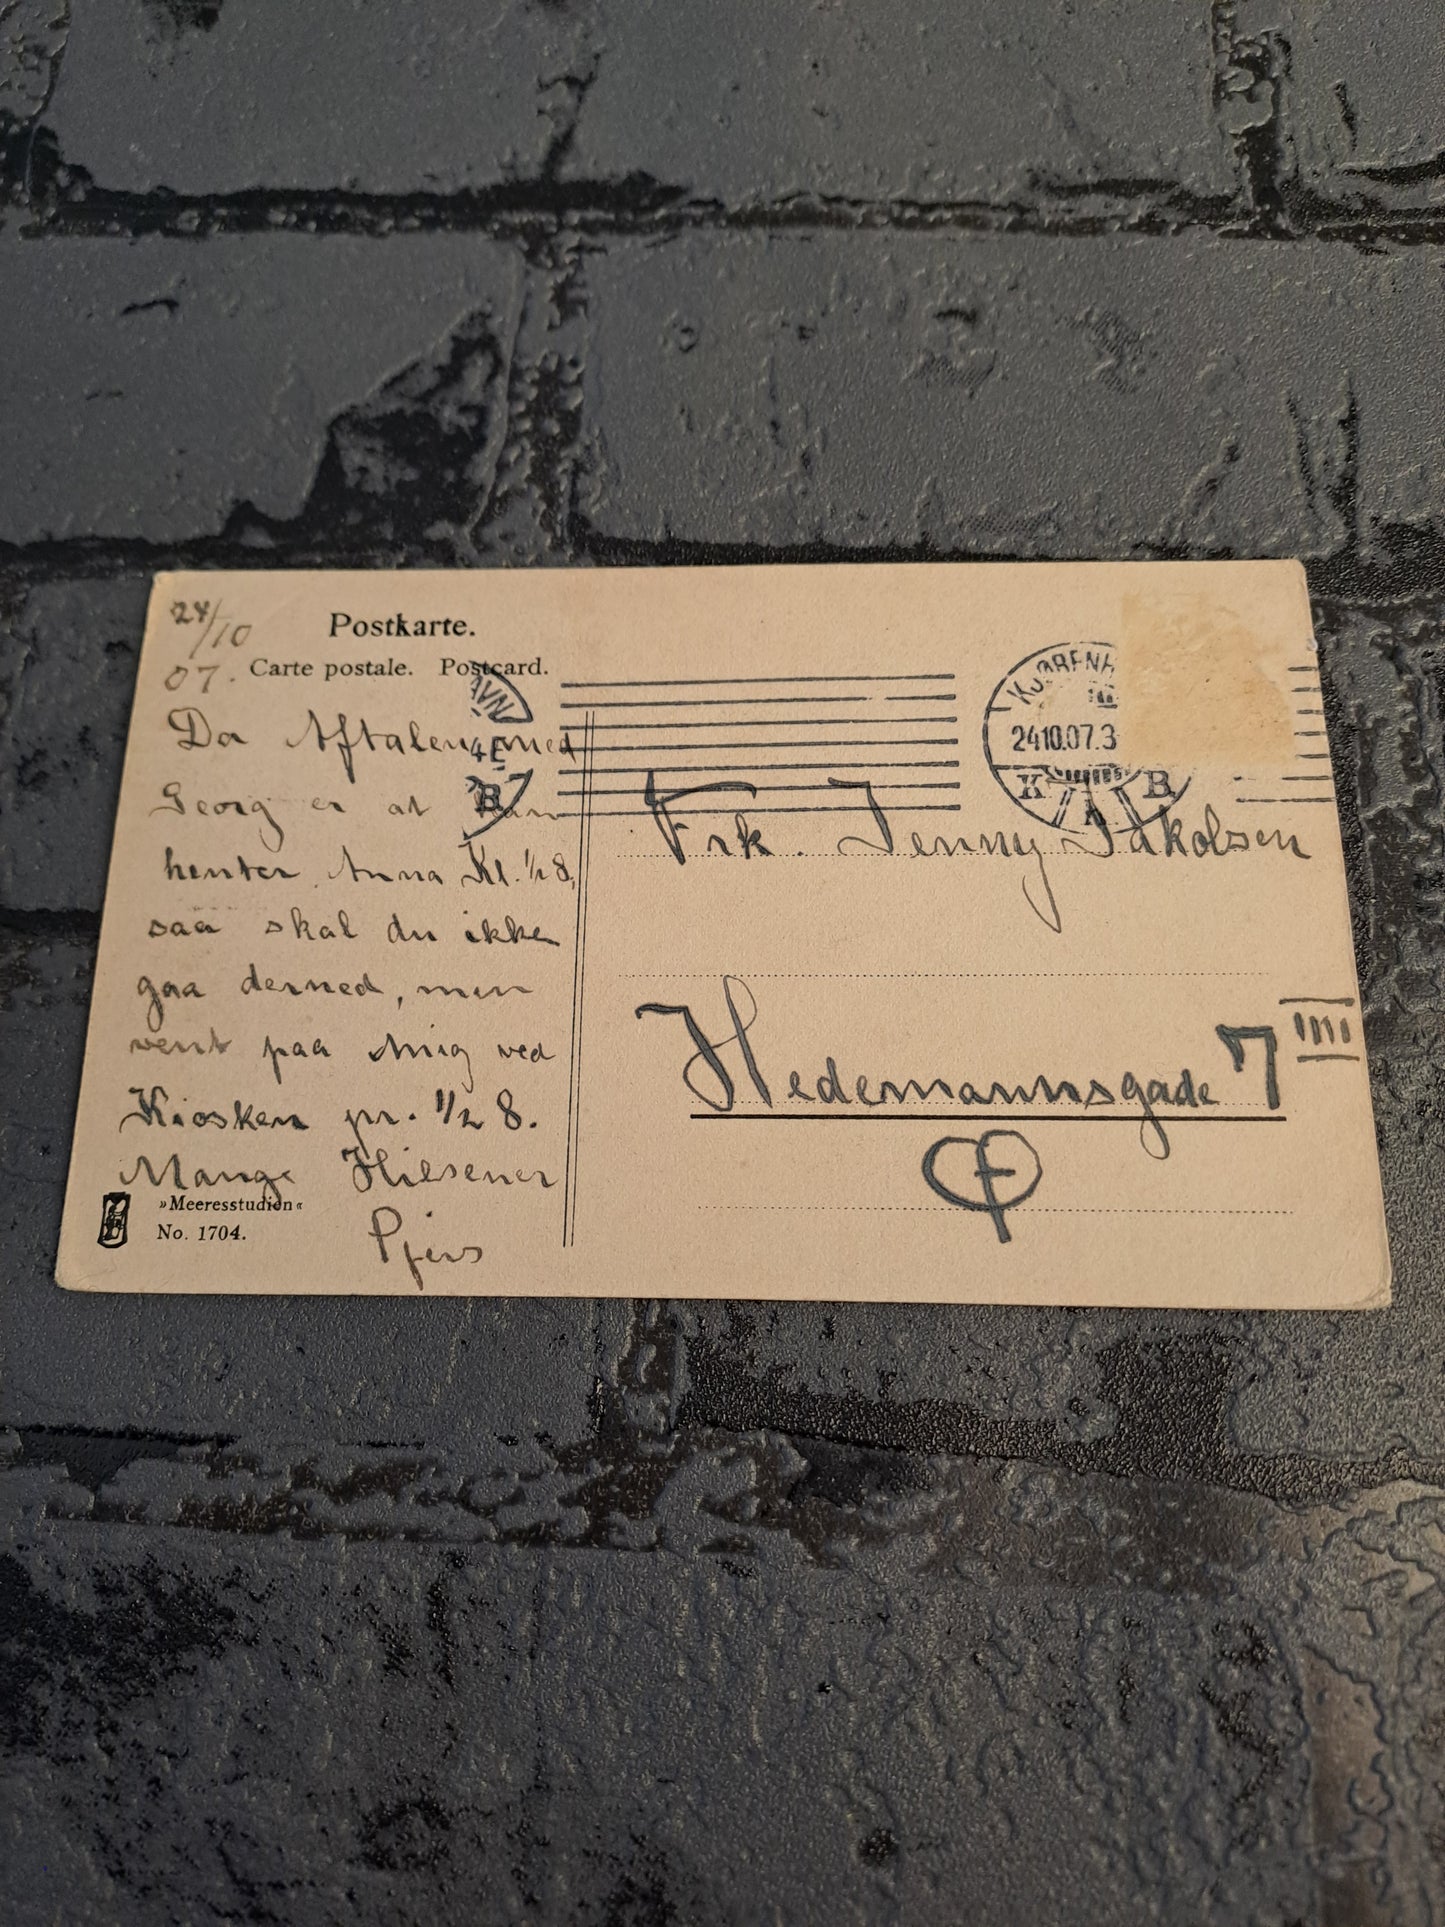 24/10
07.
Postkarte.
Carte postale. Postcard.
Da Aftalen med
Georg er at han
henter Anna Kl. ½ 8,
saa skal du ikke
gaa derned, men
vent paa mig ved
Kiosken pr. ½ 8.
Mange Hilsener
»Meeresstudien«
No. 1704.
KJØBENH
24.10.07.3
K B
B
Frk. Jenny Jakobsen
Hedemannsgade 7 IIII